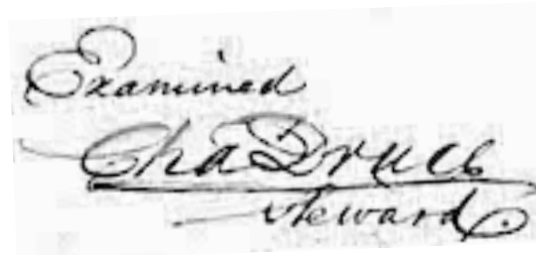 Examined
Cha Druce
Steward.